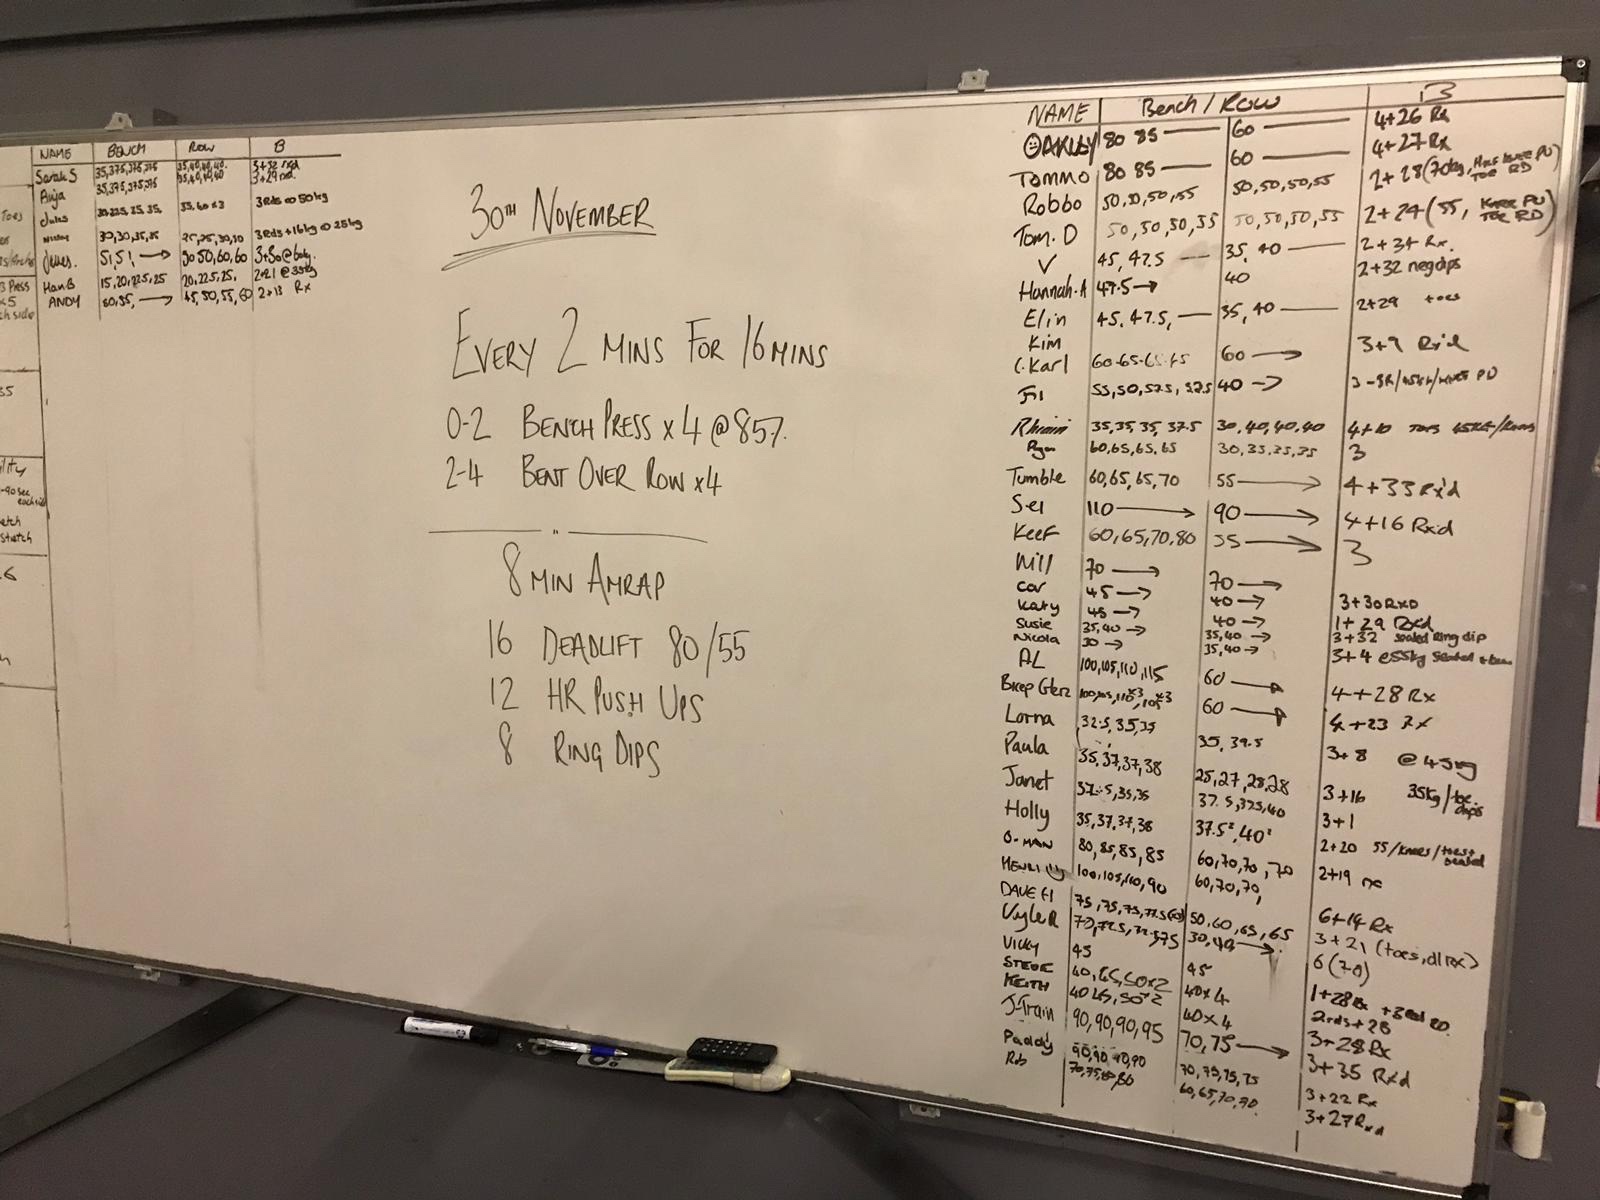 NAME BENCH ROW B
Sarah S 35,37.5,37.5,37.5 35,40,40,40. 3+32 rxd
Anja 35,37.5,37.5,37.5 35,40,40,40 3+29 rxd.
Jules 35, 40 x3 3Rds @ 50kg
30,30,35,35 25,25,30,30 3Rds + 16kg @ 25kg
James. 51,51, → 50 50,60,60
Han B 15,20,22.5,25 20,22.5,25, 2+21 @ 35kg
ANDY → 45,50,55,60 2+13 Rx
Toes
Press
x5
ch side
35
ility
-90 sec
each side
etch
stretch
30TH NOVEMBER
EVERY 2 MINS FOR 16 MINS
0-2 BENCH PRESS x 4 @ 85%.
2-4 BENT OVER ROW x4
8 MIN AMRAP
16 DEADLIFT 80/55
12 HR PUSH UPS
8 RING DIPS
NAME Bench / ROW B
OAKLEY 80 85 — 60 — 4+26 Rx
Tommo 80 85 — 60 — 4+27 Rx
Robbo 50,50,50,55 50,50,50,55 2+28 (70kg, KNEE PU TOE RD)
Tom. D 50,50,50,55 50,50,50,55 2+24 (55, KNEE PU TOE RD)
V 45, 47.5 — 35, 40 — 2+34 Rx.
Hannah.A 47.5 → 40 2+32 neg dips
Elin 45, 47.5, — 35, 40 — 2+29 toes
Kim
C.Karl 60-65-65-65 60 → 3+9 Rx'd
55,50,52.5, 52.5 40 →
35,35,35, 37.5 30,40,40,40 4+10 TOES
Ryan 60,65,65,65 30,35,35,35 3
Tumble 60,65,65,70 55 → 4+33 Rx'd
Sei 110 → 90 → 4+16 Rxd
Keef 60,65,70,80 35 → 3
Will 70 → 70 →
cor 45 → 40 → 3+30 RXD
Katy 45 → 40 → 1+29 Rxd
Susie 35,40 → 35,40 → 3+32 seated ring dip
Nicola 30 → 35,40 → 3+4 @55kg seated
AL 100,105,110,115 60 → 4+28 Rx
60 → 4+23 Rx
Lorna 32.5,35,35 35, 39.5 3+8 @45kg
Paula 35,37,37,38 25,27,28,28 3+16 35kg/toe dips
Janet 37.5,35,35 37.5,37.5,40 3+1
Holly 35,37,37,38 37.5², 40² 2+20 55/knees/toes + seated
O-MAN 80,85,85,85 60,70,70,70 2+19 rx
HENRI 100,105,110,90 60,70,70,
DAVE H 75,75,75,77.5 50,60,65,65 6+14 Rx
70,72.5,72.5,75 30,40 → 3+21 (toes, dl Rx)
VICKY 45 45 6 (70)
STEVE 40,45,50x2 40x4 1+28 Rx
KEITH 40 45,50x2 40x4 2rds+28
J-Train 90,90,90,95 70,75 → 3+28 Rx
Paddy 90,90,90,90 70,75,75,75 3+35 Rxd
Rob 60,65,70,70. 3+22 Rx
3+27 Rxd